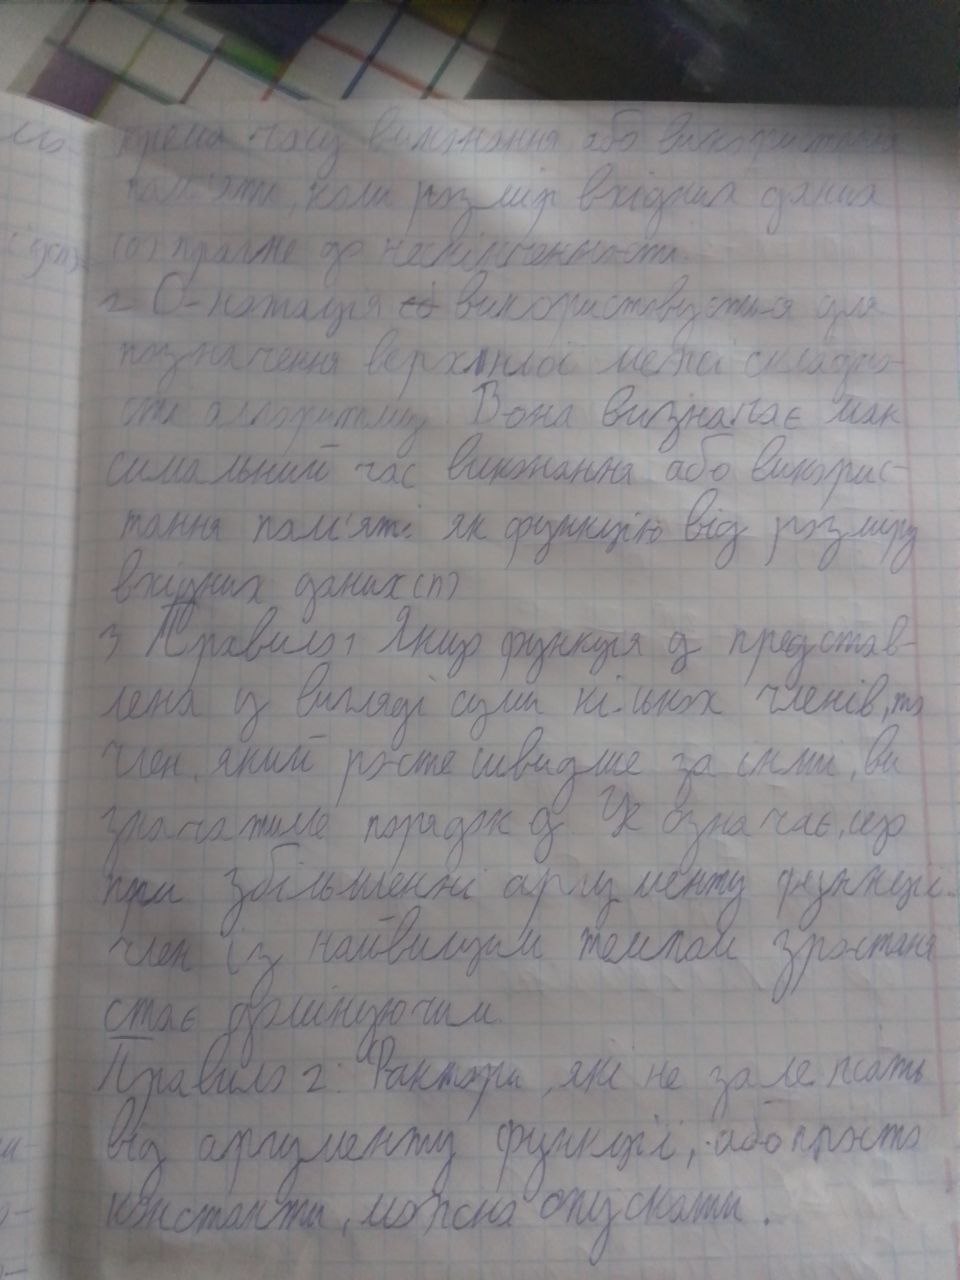 крема часу виконання або використання
пам'яти, коли розмір вхідних даних
(n) прагне до нескінченности.
2 О-нотація використовується для
позначення верхньої межі складно-
сти алгоритму. Вона визначає мак
симальний час виконання або викорис-
тання пам'яті як функцію від розміру
вхідних даних (n)
3 Правило 1 Якщо функція g представ-
лена у вигляді суми кількох членів, то
член, який росте швидше за інші, ви
значатиме порядок g Це означає, що
при збільшенні аргументу функції
член із найвищим темпом зростаня
стає домінуючим.
Правило 2: Фактори, які не залежать
від аргументу функції, або просто
константи, можна опускати.